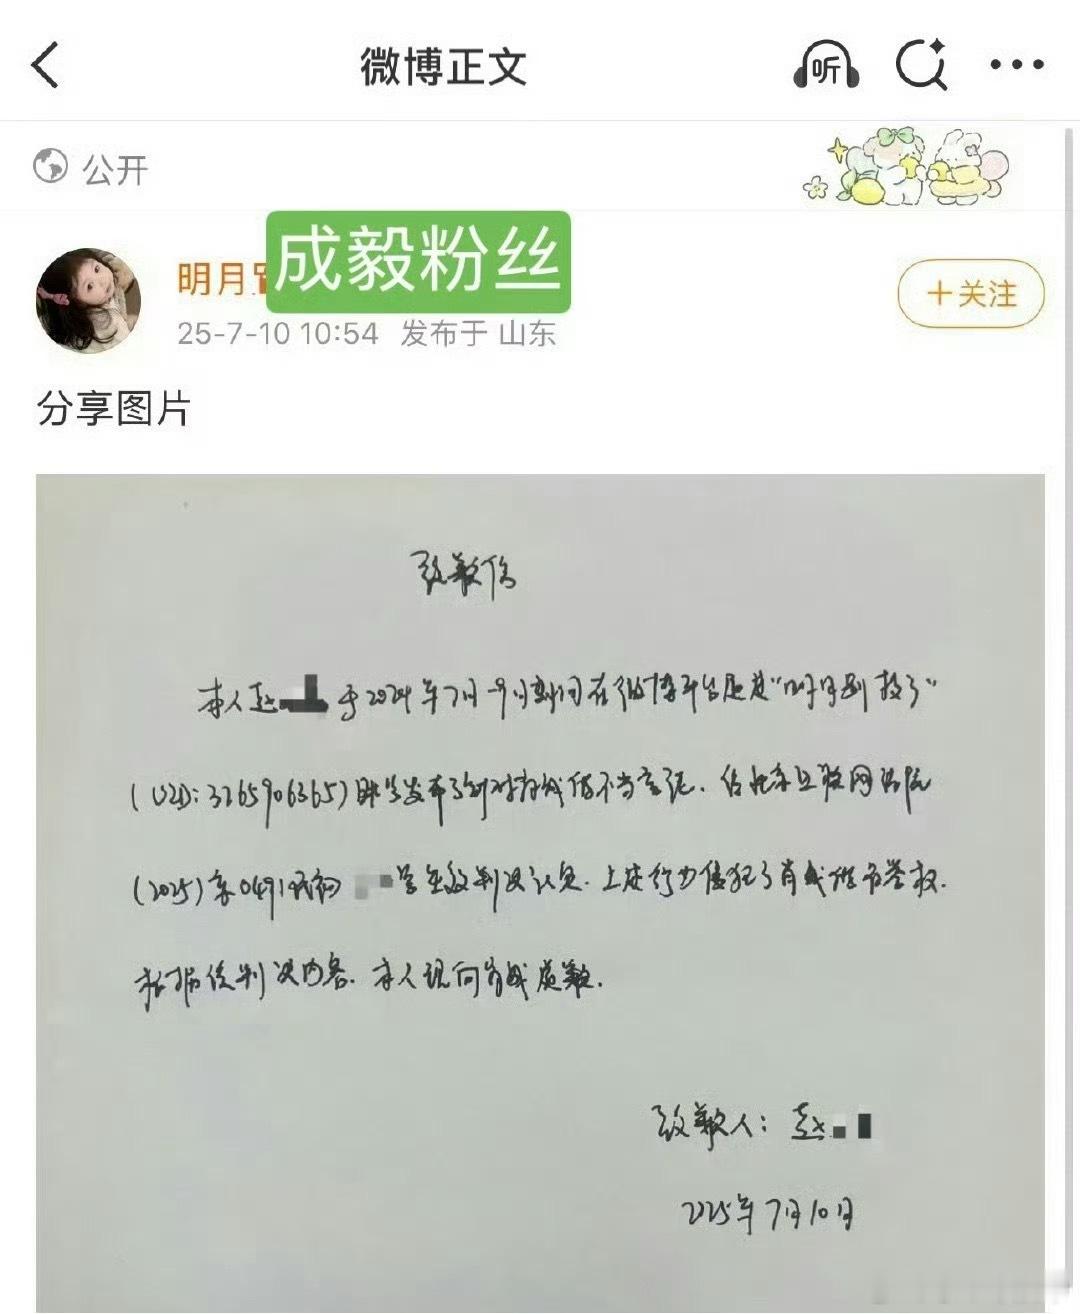 微博正文
听
公开
成毅粉丝
明月
+关注
25-7-10 10:54 发布于 山东
分享图片
致歉信
本人赵 于2024年7月-9月期间在微博平台通过"明月别投了"
(UID:3265906365)账号发布了针对肖战的不当言论.经北京互联网法院
(2025)京0491民初 号生效判决认定.上述行为侵犯了肖战的名誉权.
根据该判决内容.本人现向肖战致歉.
致歉人:赵
2025年7月10日